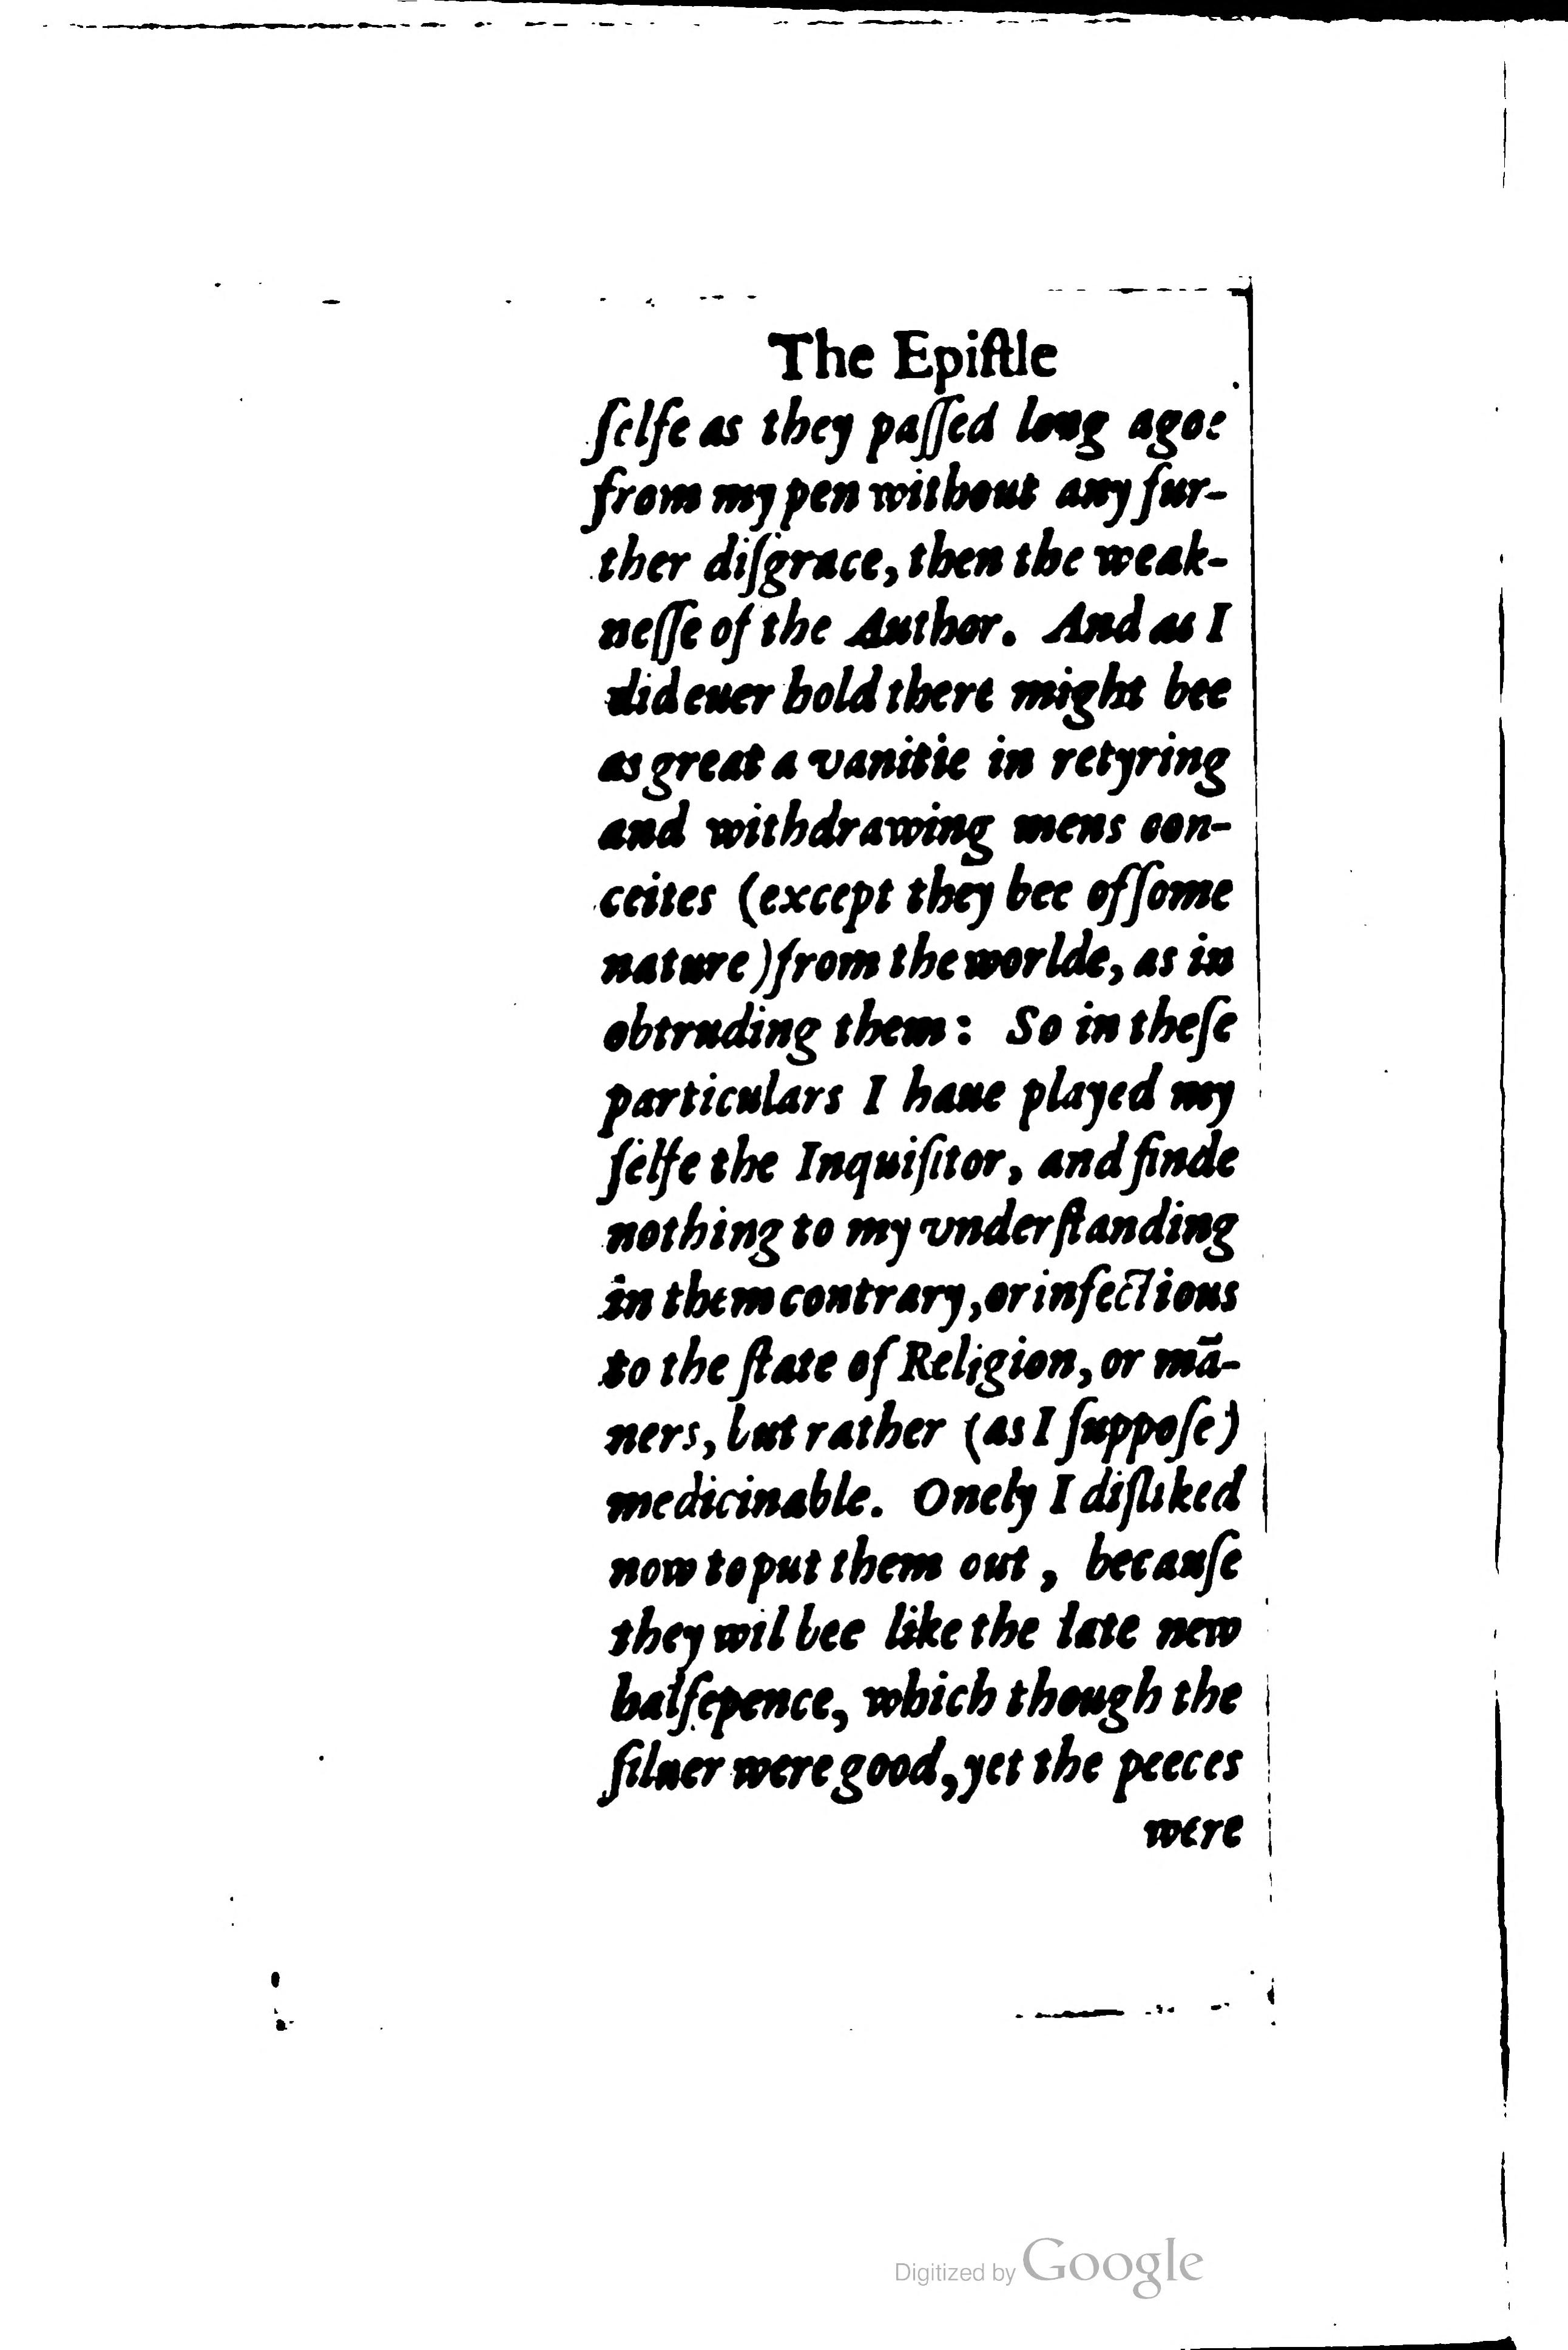 The Epiſtle
ſelfe as they paſſed long agoe
from my pen without any fur-
ther diſgrace, then the weak-
neſſe of the Author. And as I
did euer hold there might bee
as great a vanitie in retyring
and withdrawing mens con-
ceites (except they bee of ſome
nature) from the worlde, as in
obtruding them: So in theſe
particulars I haue played my
ſelfe the Inquiſitor, and finde
nothing to my vnderſtanding
in them contrary, or infectious
to the ſtate of Religion, or mā-
ners, but rather (as I ſuppoſe)
medicinable. Onely I diſliked
now to put them out, becauſe
they wil bee like the late new
halfepence, which though the
ſiluer were good, yet the peeces
were
Digitized by Google